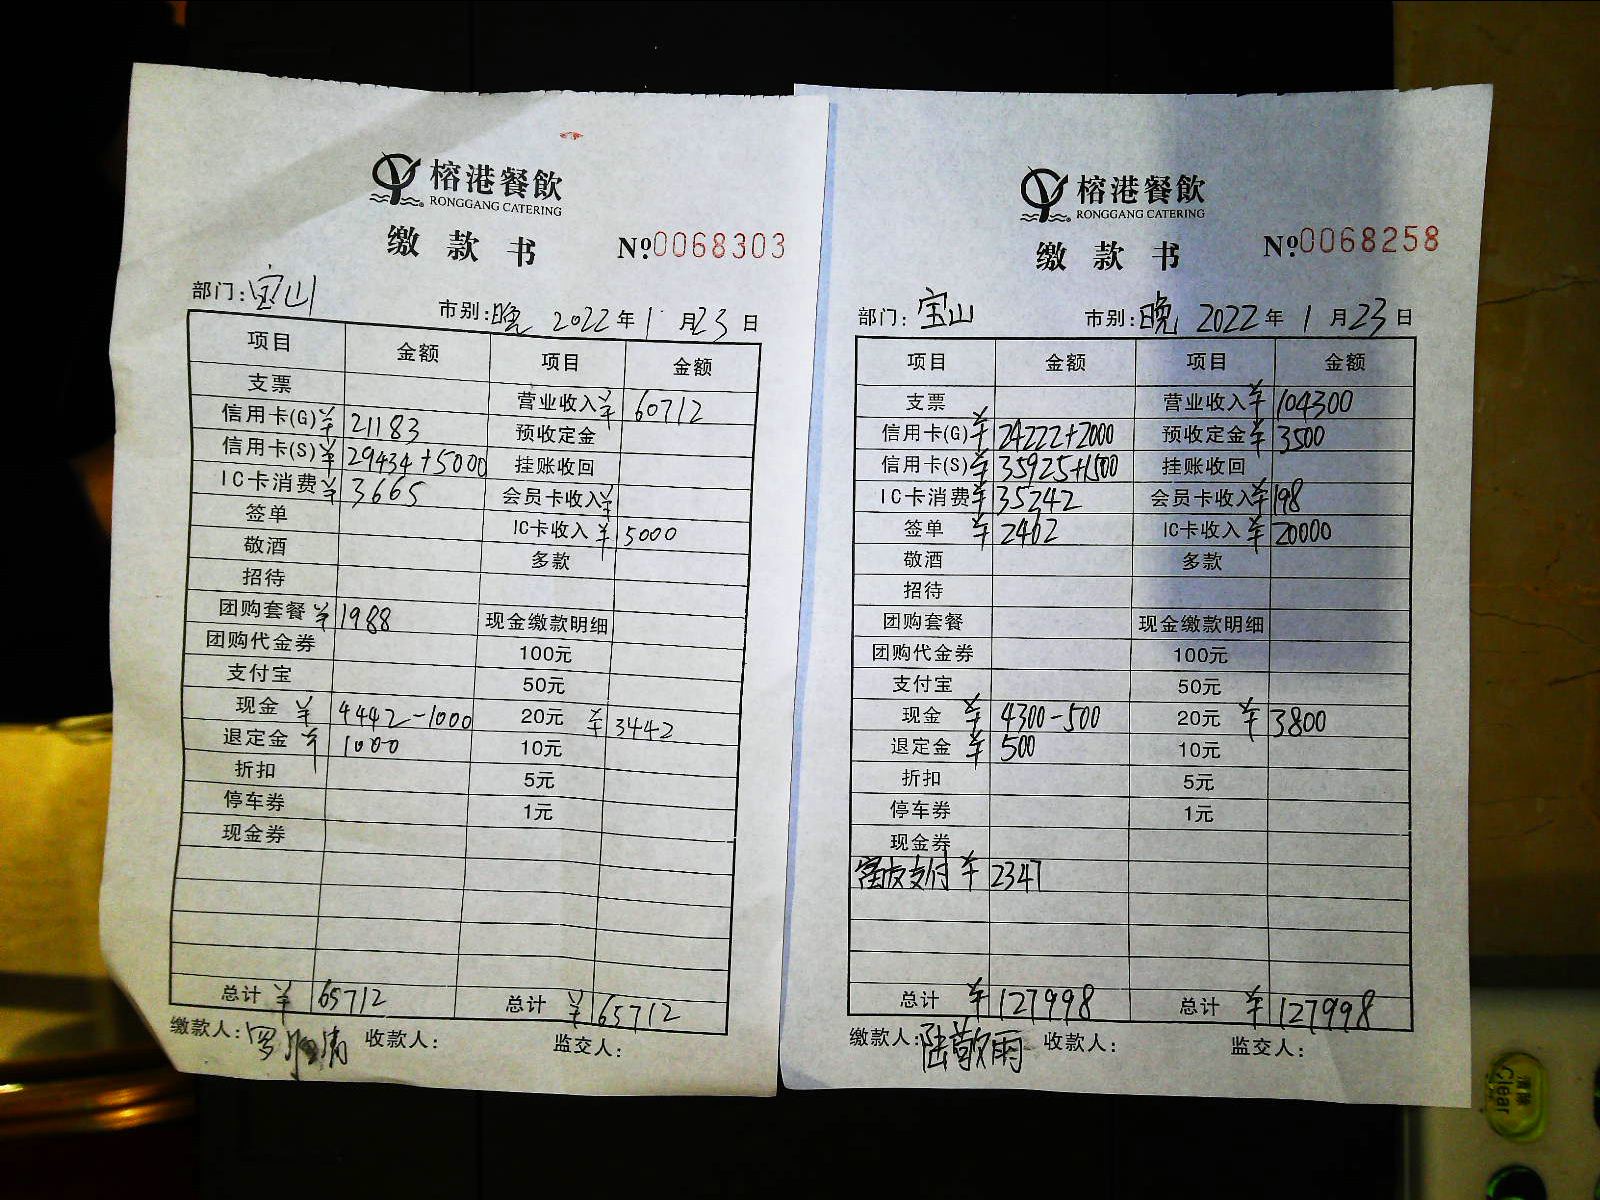 榕港餐飲
RONGGANG CATERING
缴款书 №0068303
部门:宝山 市别:晚 2022年1月23日
项目 金额 项目 金额
支票 营业收入¥ 60712
信用卡(G)¥ 21183 预收定金
信用卡(S)¥ 29434+5000 挂账收回
IC卡消费¥ 3665 会员卡收入¥
签单 IC卡收入¥ 5000
敬酒 多款
招待
团购套餐¥ 1988 现金缴款明细
团购代金券 100元
支付宝 50元
现金¥ 4442-1000 20元¥ 3442
退定金¥ 1000 10元
折扣 5元
停车券 1元
现金券
总计¥ 65712 总计¥ 65712
缴款人:罗 收款人: 监交人:
榕港餐飲
RONGGANG CATERING
缴款书 №0068258
部门:宝山 市别:晚 2022年1月23日
项目 金额 项目 金额
支票 营业收入¥ 104300
信用卡(G)¥ 24222+2000 预收定金¥ 3500
信用卡(S)¥ 35925+1500 挂账收回
IC卡消费¥ 35242 会员卡收入¥ 198
签单¥ 2462 IC卡收入¥ 20000
敬酒 多款
招待
团购套餐 现金缴款明细
团购代金券 100元
支付宝 50元
现金¥ 4300-500 20元¥ 3800
退定金¥ 500 10元
折扣 5元
停车券 1元
现金券
友支付¥ 2347
总计¥ 127998 总计¥ 127998
缴款人:陆敬雨 收款人: 监交人:
清除
Clear